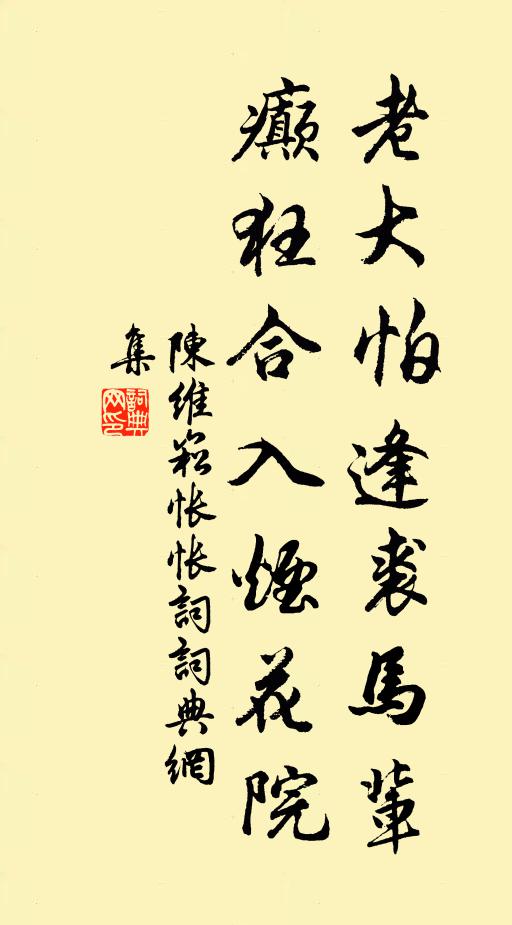 老大怕逢裘馬輩
癲狂合入煙花院
陳維崧悵悵詞詞典網
集
詞典網印